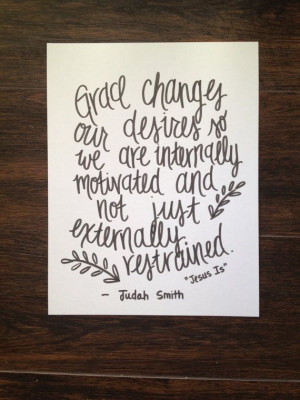 Grace changes
our desires so
we are internally
motivated and
not just
externally
restrained.
"Jesus Is"
- Judah Smith